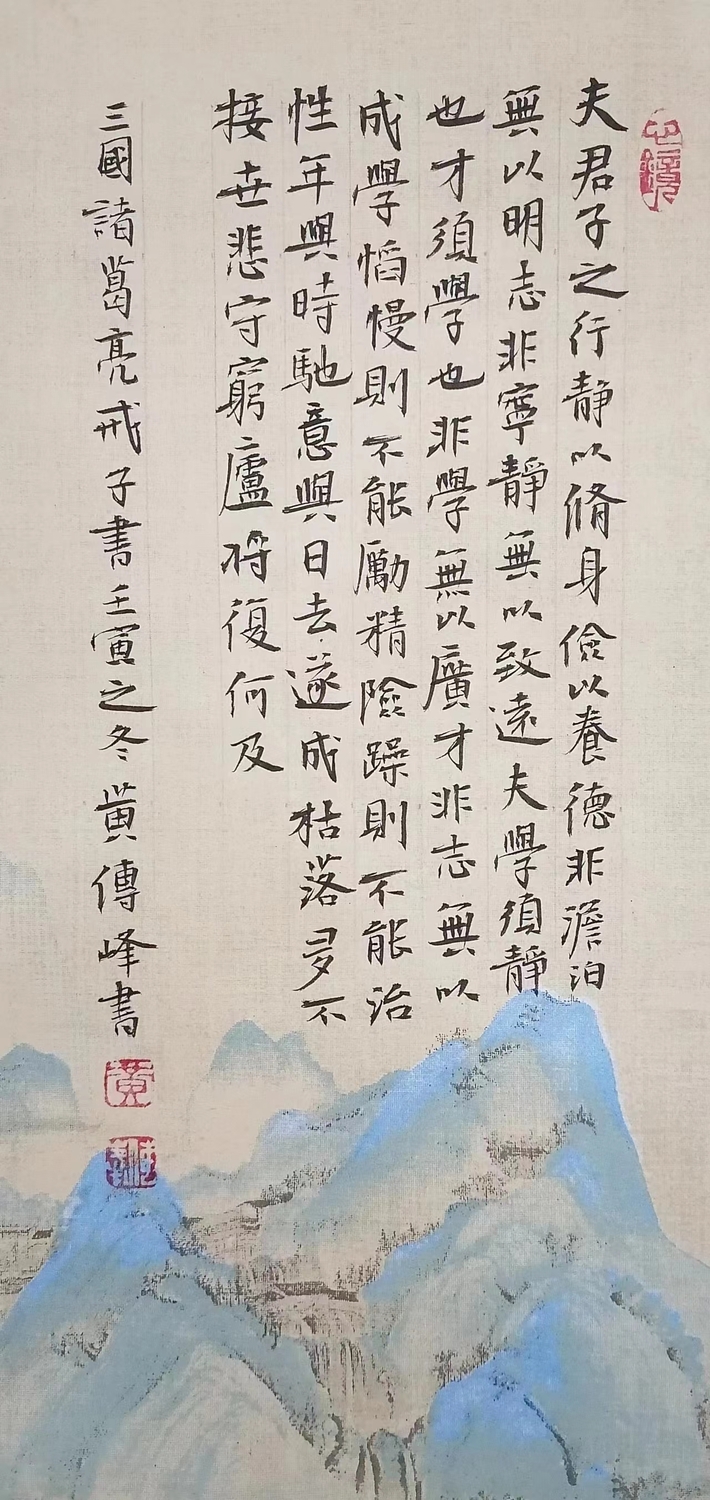 心鏡
夫君子之行靜以脩身儉以養德非澹泊
無以明志非寧靜無以致遠夫學須靜
也才須學也非學無以廣才非志無以
成學慆慢則不能勵精險躁則不能治
性年與時馳意與日去遂成枯落多不
接世悲守窮廬將復何及
三國諸葛亮戒子書壬寅之冬黄傳峰書
黄